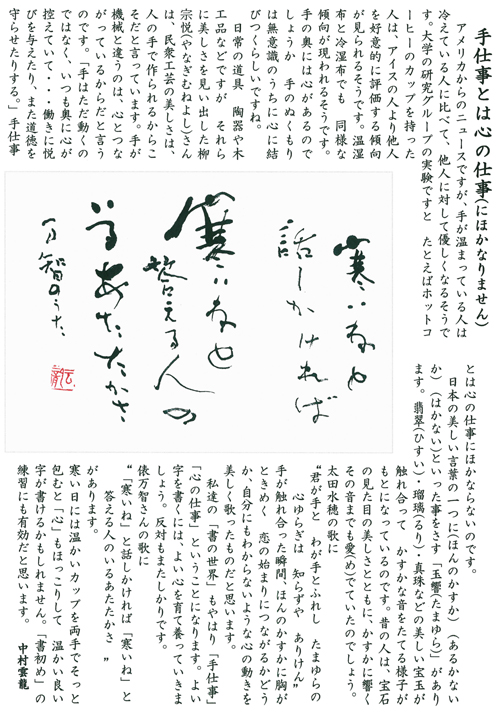 手仕事とは心の仕事(にほかなりません)
アメリカからのニュースですが、手が温まっている人は
冷えている人に比べて、他人に対して優しくなるそうで
す。大学の研究グループの実験ですと　たとえばホットコ
ーヒーのカップを持った
人は、アイスの人より他人
を好意的に評価する傾向
が見られるそうです。温湿
布と冷湿布でも　同様な
傾向が現われるそうです。
手の奥には心があるので
しょうか　手のぬくもり
は無意識のうちに心に結
びつくらしいですね。
日常の道具　陶器や木
工品などですが　それら
に美しさを見い出した柳
宗悦(やなぎむねよし)さん
は、民衆工芸の美しさは、
人の手で作られるからこ
そだと言っています。手が
機械と違うのは、心とつな
がっているからだと言う
のです。「手はただ動くの
ではなく、いつも奥に心が
控えていて・・働きに悦
びを与えたり、また道徳を
守らせたりする。」手仕事
とは心の仕事にほかならないのです。
日本の美しい言葉の一つに(ほんのかすか)(あるかない
か)(はかない)といった事をさす「玉響(たまゆら)」があり
ます。翡翠(ひすい)・瑠璃(るり)・真珠などの美しい宝玉が
触れ合って　かすかな音をたてる様子が
もとになっているのです。昔の人は、宝石
の見た目の美しさとともに、かすかに響く
その音までも愛(め)でていたのでしょう。
太田水穂の歌に
“君が手と　わが手とふれし　たまゆらの
心ゆらぎは　知らずや　ありけん”
手が触れ合った瞬間、ほんのかすかに胸が
ときめく　恋の始まりにつながるかどう
か、自分にもわからないような心の動きを
美しく歌ったものだと思います。
私達の「書の世界」もやはり「手仕事」
「心の仕事」ということになります。よい
字を書くには、よい心を育て養っていきま
しょう。反対もまたしかりです。
俵万智さんの歌に
“「寒いね」と話しかければ「寒いね」と
答える人のいるあたたかさ　”
があります。
寒い日には温かいカップを両手でそっと
包むと「心」もほっこりして　温かい良い
字が書けるかもしれません。「書初め」の
練習にも有効だと思います。　中村雲龍
寒いねと
話しかければ
寒いねと
答える人の
いるあたたかさ
万智のうた